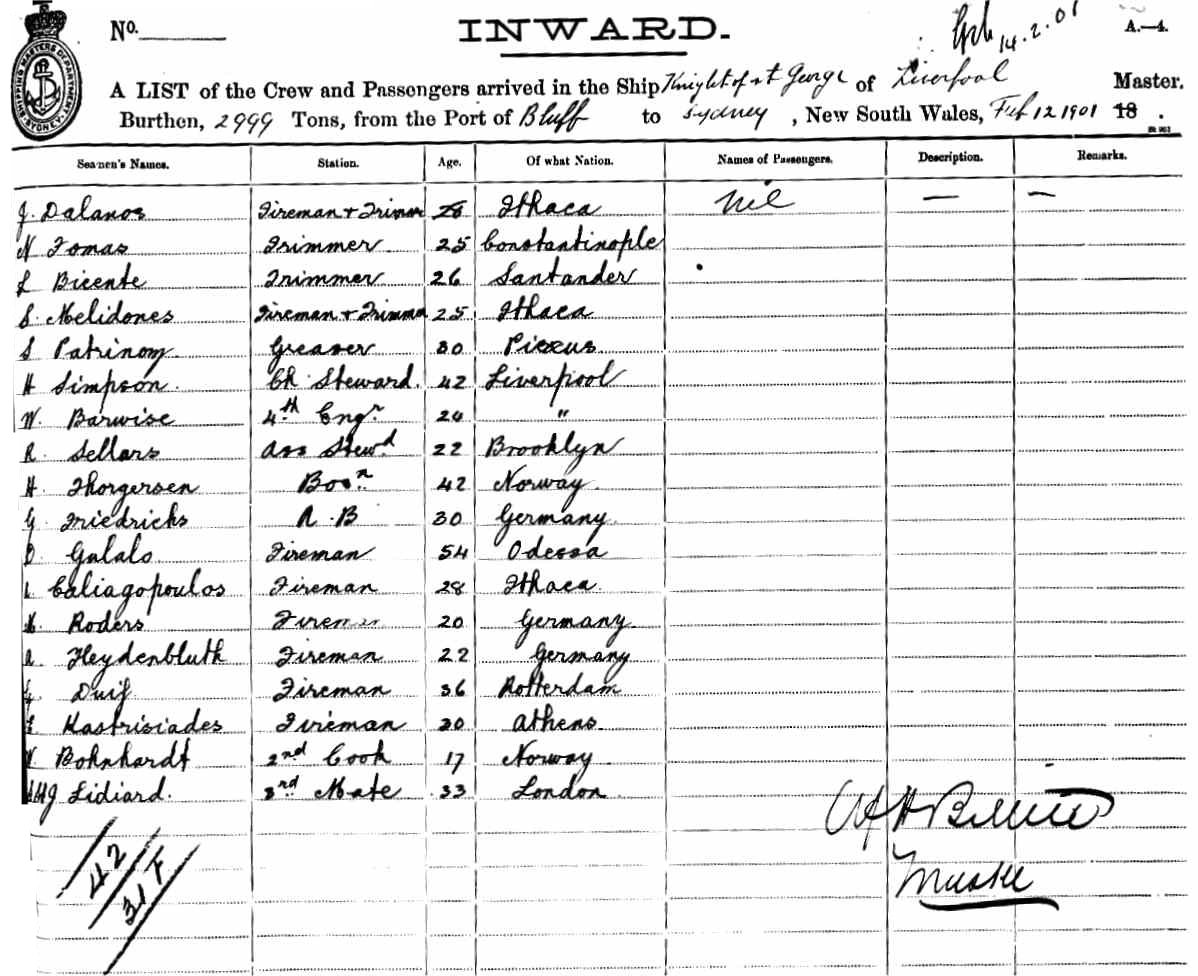 No. INWARD. 14.2.01 A.—4.
A LIST of the Crew and Passengers arrived in the Ship Knight of St George of Liverpool Master.
Burthen, 2999 Tons, from the Port of Bluff to Sydney, New South Wales, Feb 12 1901 18 .
SHIPPING MASTERS DEPARTMENT SYDNEY
Seamen's Names. Station. Age. Of what Nation. Names of Passengers. Description. Remarks.
J. Dalanos Fireman + Trimmer 26 Ithaca Nil — —
N Tomas Trimmer 25 Constantinople
L Bicente Trimmer 26 Santander
S. Melidones Fireman + Trimmer 25 Ithaca
S Patrinom Greaser 30 Piexus
H Simpson Ch Steward. 42 Liverpool
W. Barwise 4th Engr 20 "
R. Sellars Ass Stewd 22 Brooklyn
H. Thorgersen Bosn 42 Norway
G. Friedrichs A.B 30 Germany
D. Galalo Fireman 54 Odessa
Caliagopoulos Fireman 28 Ithaca
Roders Fireman 20 Germany
A. Heydenbluth Fireman 22 Germany
Duif Fireman 36 Rotterdam
Kastrisiades Fireman 30 Athens
Bohnhardt 2nd Cook 17 Norway
Lidiard. 3rd Mate 33 London
42
31 F
Master